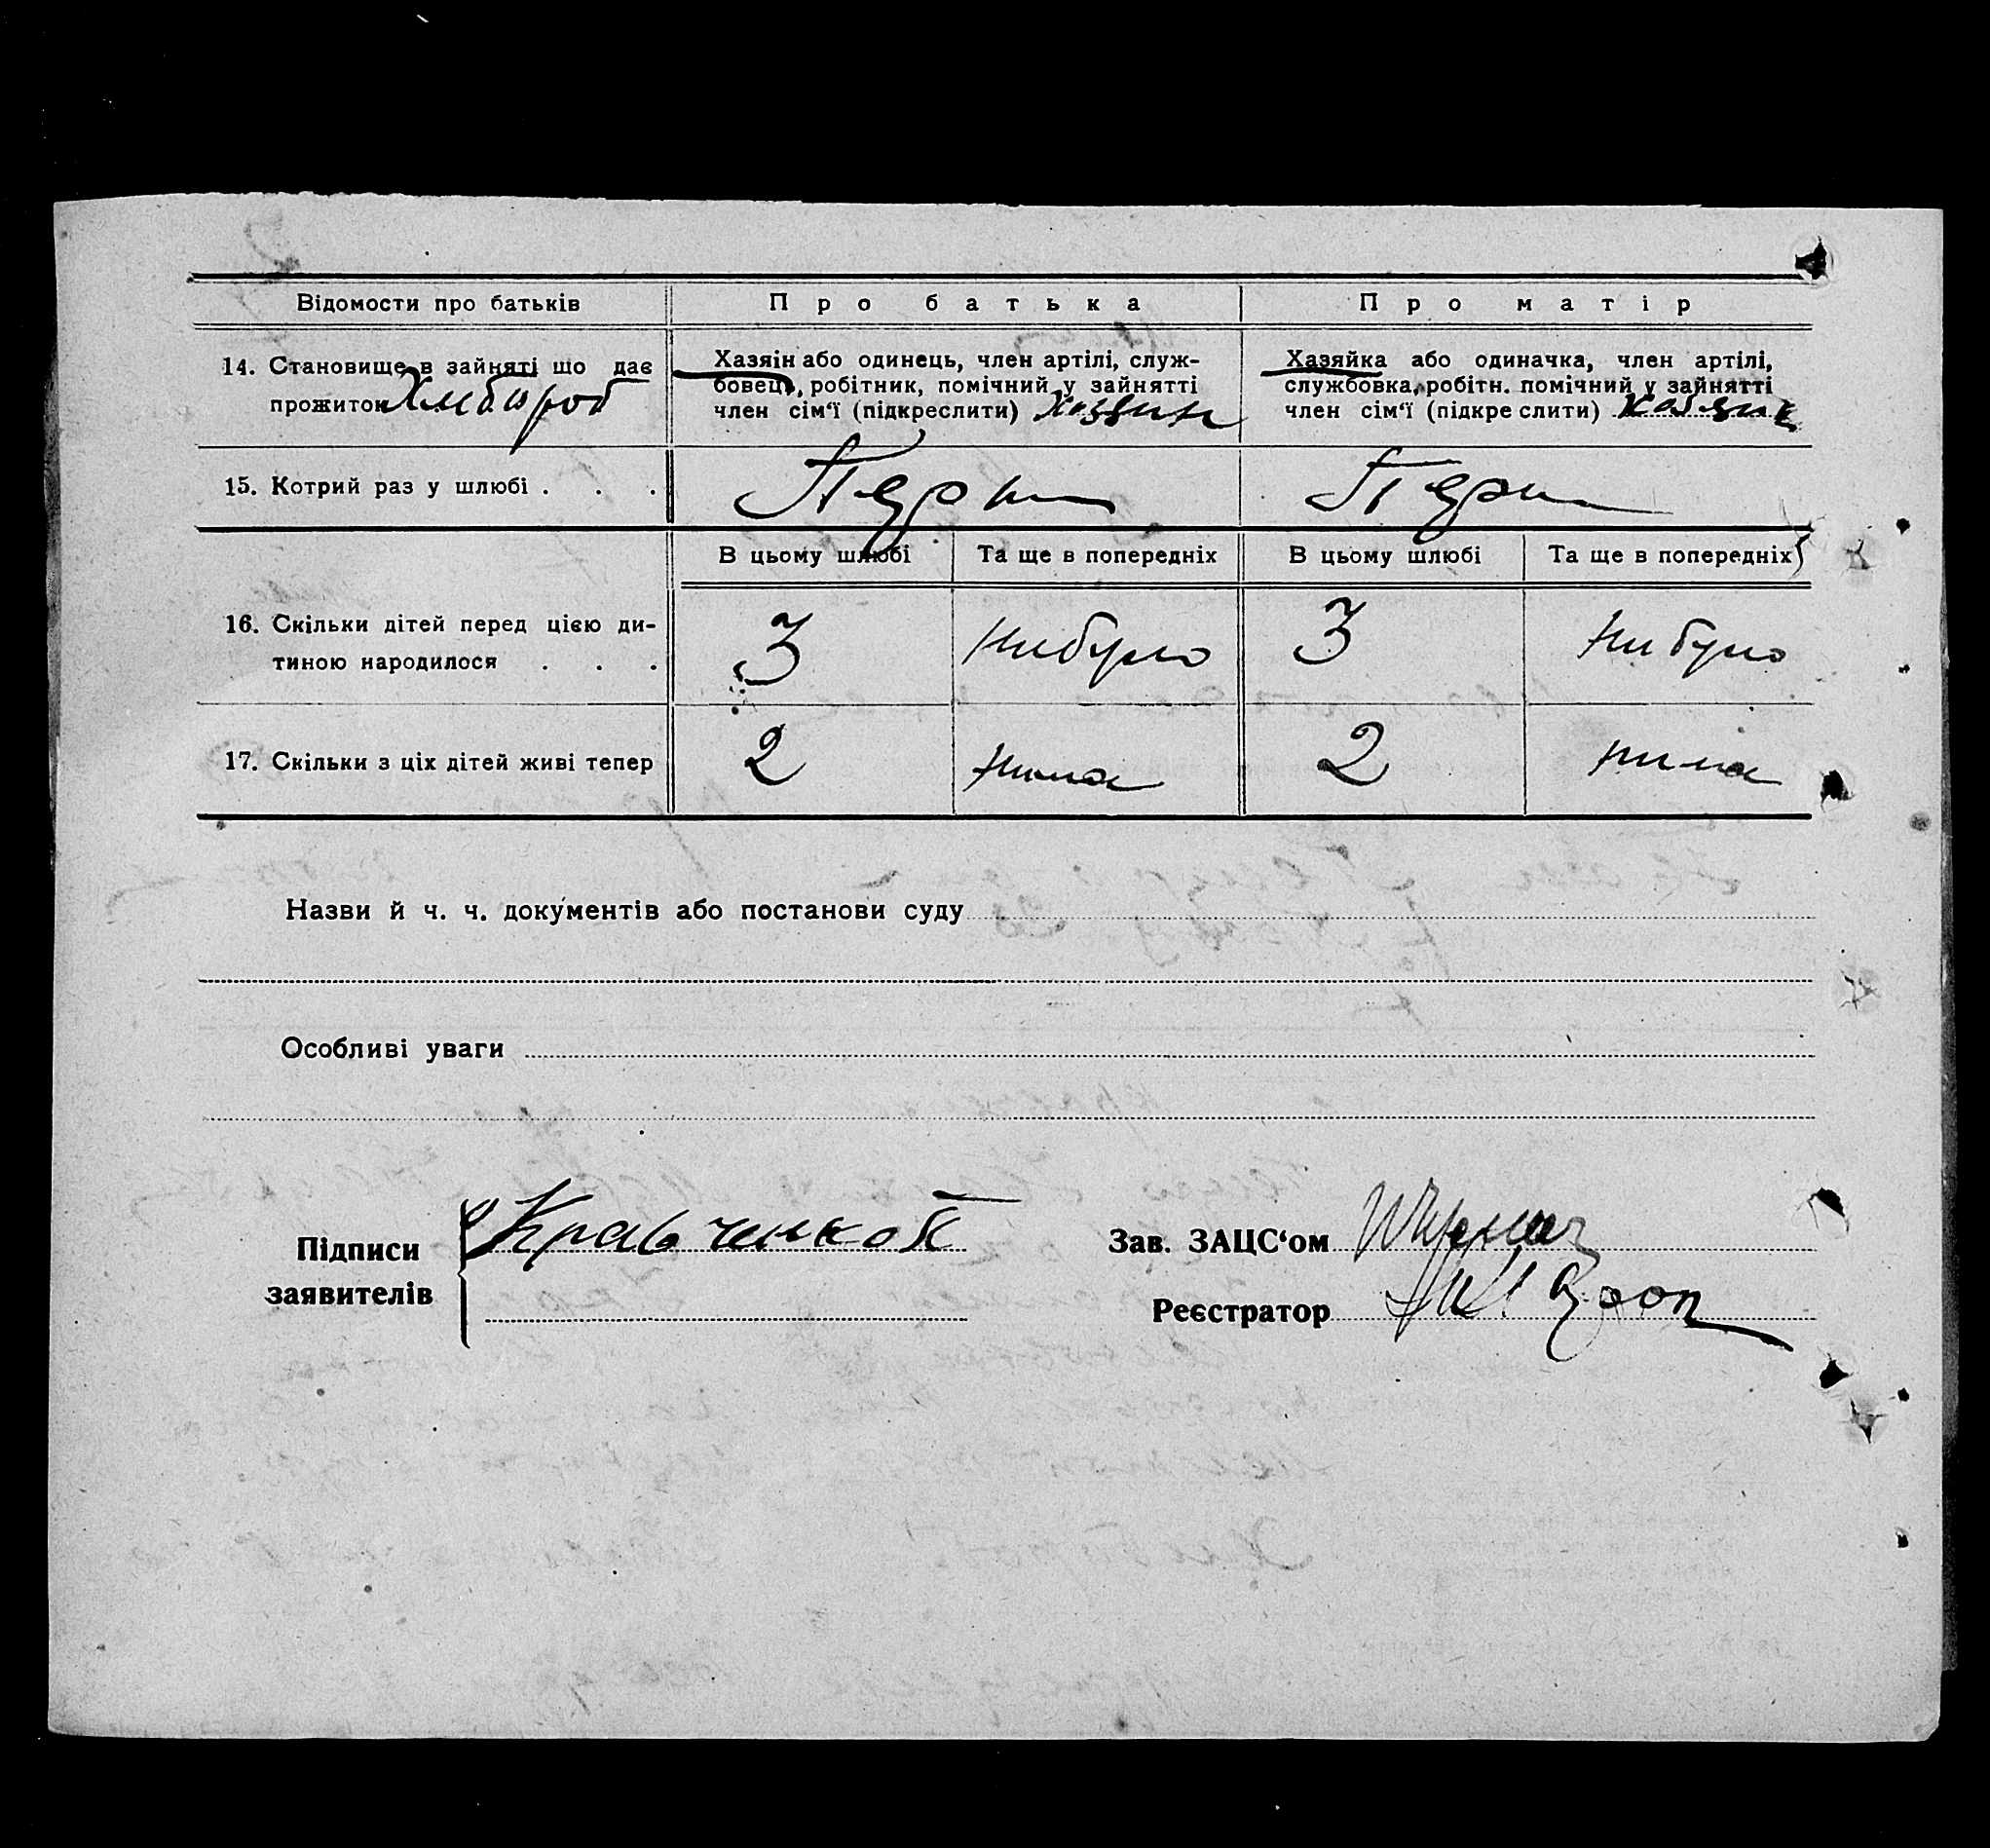 Відомости про батьків Про батька Про матір
14. Становище в зайняті що дає
прожиток Хлібороб
Хазяін або одинець, член артілі, служ-
бовець, робітник, помічний у зайнятті
член сім‘ї (підкреслити) Хазяин
Хазяйка або одиначка, член артілі,
службовка, робітн. помічний у зайнятті
член сім‘ї (підкре слити)
15. Котрий раз у шлюбі . . .
В цьому шлюбі Та ще в попередніх В цьому шлюбі Та ще в попередніх
16. Скільки дітей перед цією ди-
тиною народилося . . .
3 нибуло 3 ни було
17. Скільки з ціх дітей живі тепер 2 нима 2 нима
Назви й ч. ч. документів або постанови суду
Особливі уваги
Підписи
заявителів
Кравченко
Зав. ЗАЦС‘ом
Реєстратор